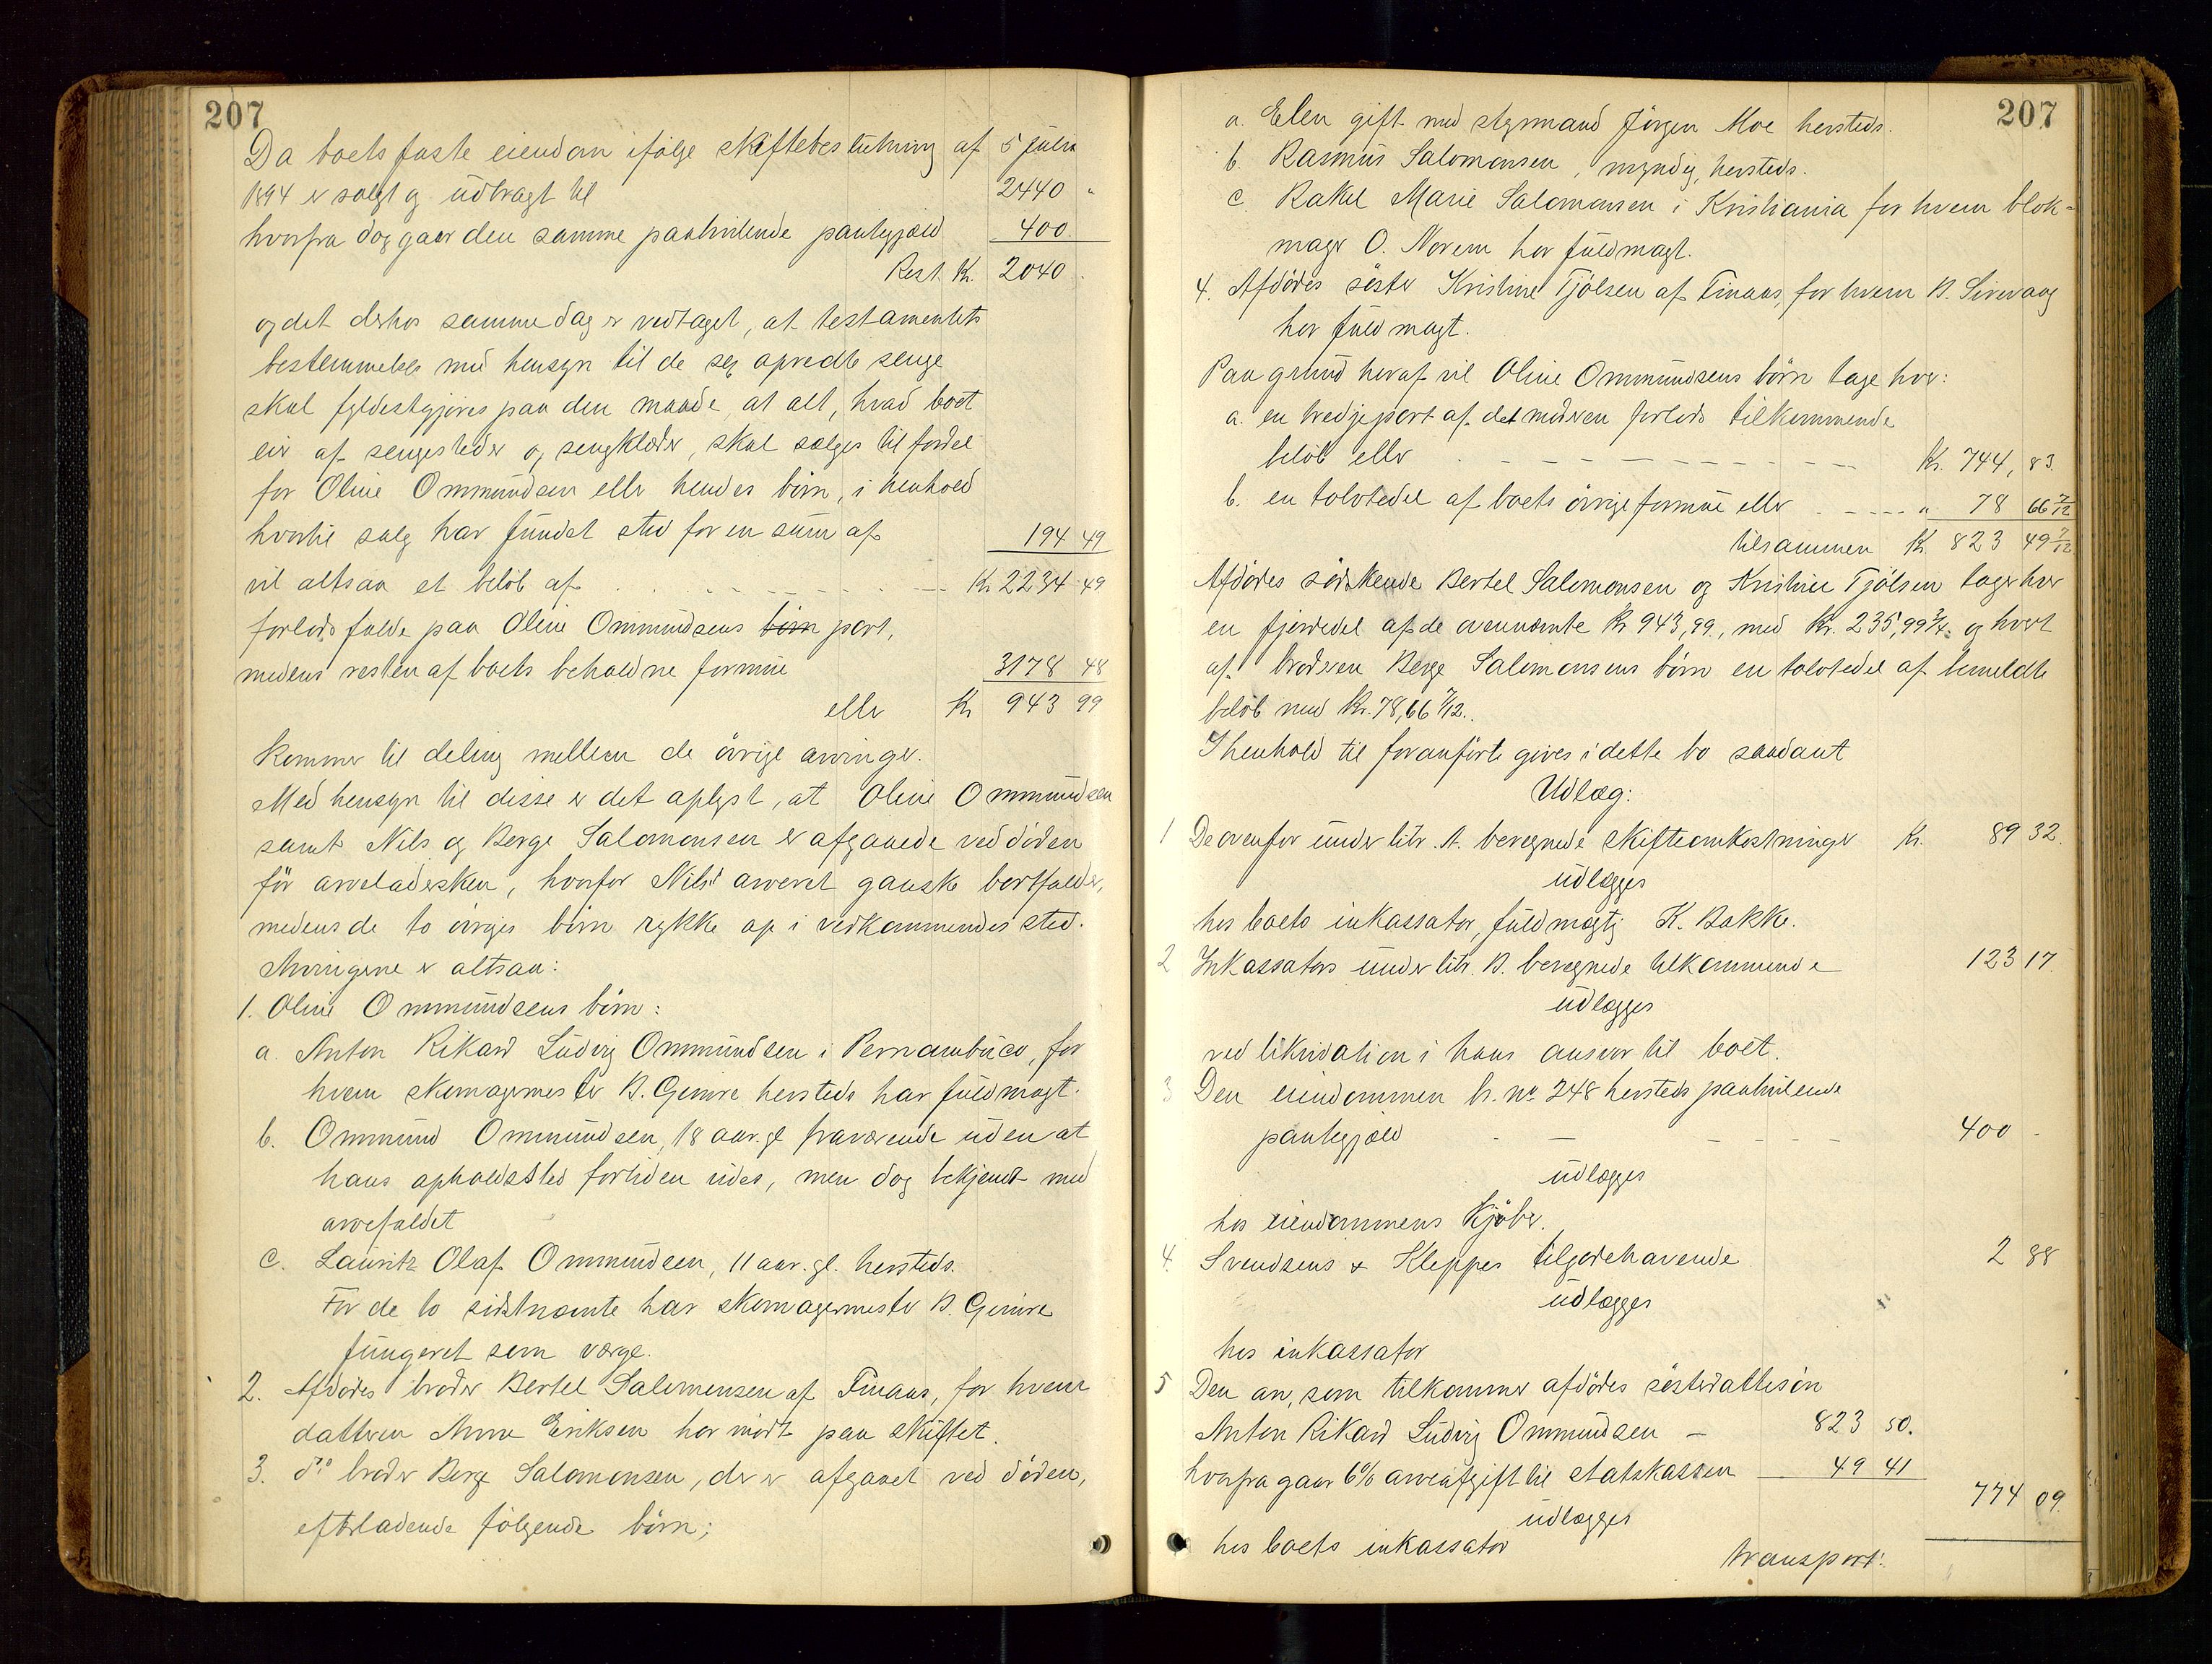 207
Da boets faste eiendom ifølge skiftebeslutning af 5 juli
1894 er solgt og udbragt til 2440 "
hvorfra dog gaar den samme paahvilende pantegjæld 400.
Rest. Kr. 2040.
og det derhos samme dag er vedtaget, at testamentets
bestemmelse med hensyn til de sex opredte senge
skal fyldestgjøres paa den maade, at alt, hvad boet
eier af sengesteder og sengklæder, skal sælges til fordel
for Oline Ommundsen eller hendes børn, i henhold
hvortil salg har fundet sted for en sum af 194 49
vil altsaa et beløb af Kr 2234 49
forlods falde paa Oline Ommundsens børn part,
medens resten af boets beholdne formue 3178 48
eller Kr 943 99
kommer til deling mellem de øvrige arvinger.
Med hensyn til disse er det oplyst, at Oline Ommundsen
samt Nils og Berge Salomonsen er afgaaede ved døden
før arveladersken, hvorfor Nils's arveret ganske bortfalder,
medens de to øvriges børn rykke op i vedkommendes sted.
Arvingerne er altsaa:
1. Oline Ommundsens børn:
a. Anton Rikard Ludvig Ommundsen i Pernambuco, for
hvem skomagermester B. Gjemre hersteds har fuldmagt.
b. Ommund Ommundsen, 18 aar. gl fraværende uden at
hans opholdssted fortiden vides, men dog bekjendt med
arvefaldet
c. Lauritz Olaf Ommundsen, 11 aar. gl. hersteds.
For de to sidstnævnte har skomagermester B. Gjemre
fungeret som værge.
2. Afdødes broder Bertel Salomonsen af Finaas, for hvem
datteren Anna Eriksen har mødt paa skiftet.
3. do broder Berge Salomonsen, der er afgaaet ved døden,
efterladende følgende børn;
207
a. Elen gift med styrmand Jørgen Moe hersteds.
b. Rasmus Salomonsen, myndig, hersteds.
c. Rakel Marie Salomonsen i Kristiania for hvem blok-
mager O. Norem har fuldmagt.
4. Afdødes søster Kristine Tjølsen af Finaas, for hvem B. Sirevaag
har fuldmagt.
Paa grund heraf vil Oline Ommundsens børn tage hver:
a. en tredjepart af det moderen forlods tilkommende
beløb eller Kr. 744, 83.
b. en tolvtedel af boets øvrige formue eller " 78 66 7/12
tilsammen Kr. 823 49 7/12
Afdødes sødskende Bertel Salomonsen og Kristine Tjølsen tager hver
en fjerdedel af de ovennævnte Kr 943,99, med Kr. 235,99 3/4 og hvert
af broderen Berge Salomonsens børn en tolvtedel af bemeldte
beløb med Kr. 78,66 7/12.
I henhold til foranførte gives i dette bo saadant
Udlæg:
1 De ovenfor under litr. A. beregnede skifteomkostninger Kr. 89 32.
udlægges
hos boets inkassator, fuldmægtig K. Bakke.
2 Inkassators under litr. B. beregnede tilkommende 123 17.
udlægges
ved likvidation i hans ansvar til boet.
3 Den eiendommen br. nr 248 hersteds paahvilende
pantegjæld 400 -
udlægges
hos eiendommens kjøber.
4. Svendsens & Kleppes tilgodehavende 2 88
udlægges
hos inkassator
5 Den arv, som tilkommer afdødes søsterdattersøn
Anton Rikard Ludvig Ommundsen - 823 50.
hvorfra gaar 6% arveafgift til statskassen 49 41
774 09
udlægges
hos boets inkassator
transport: